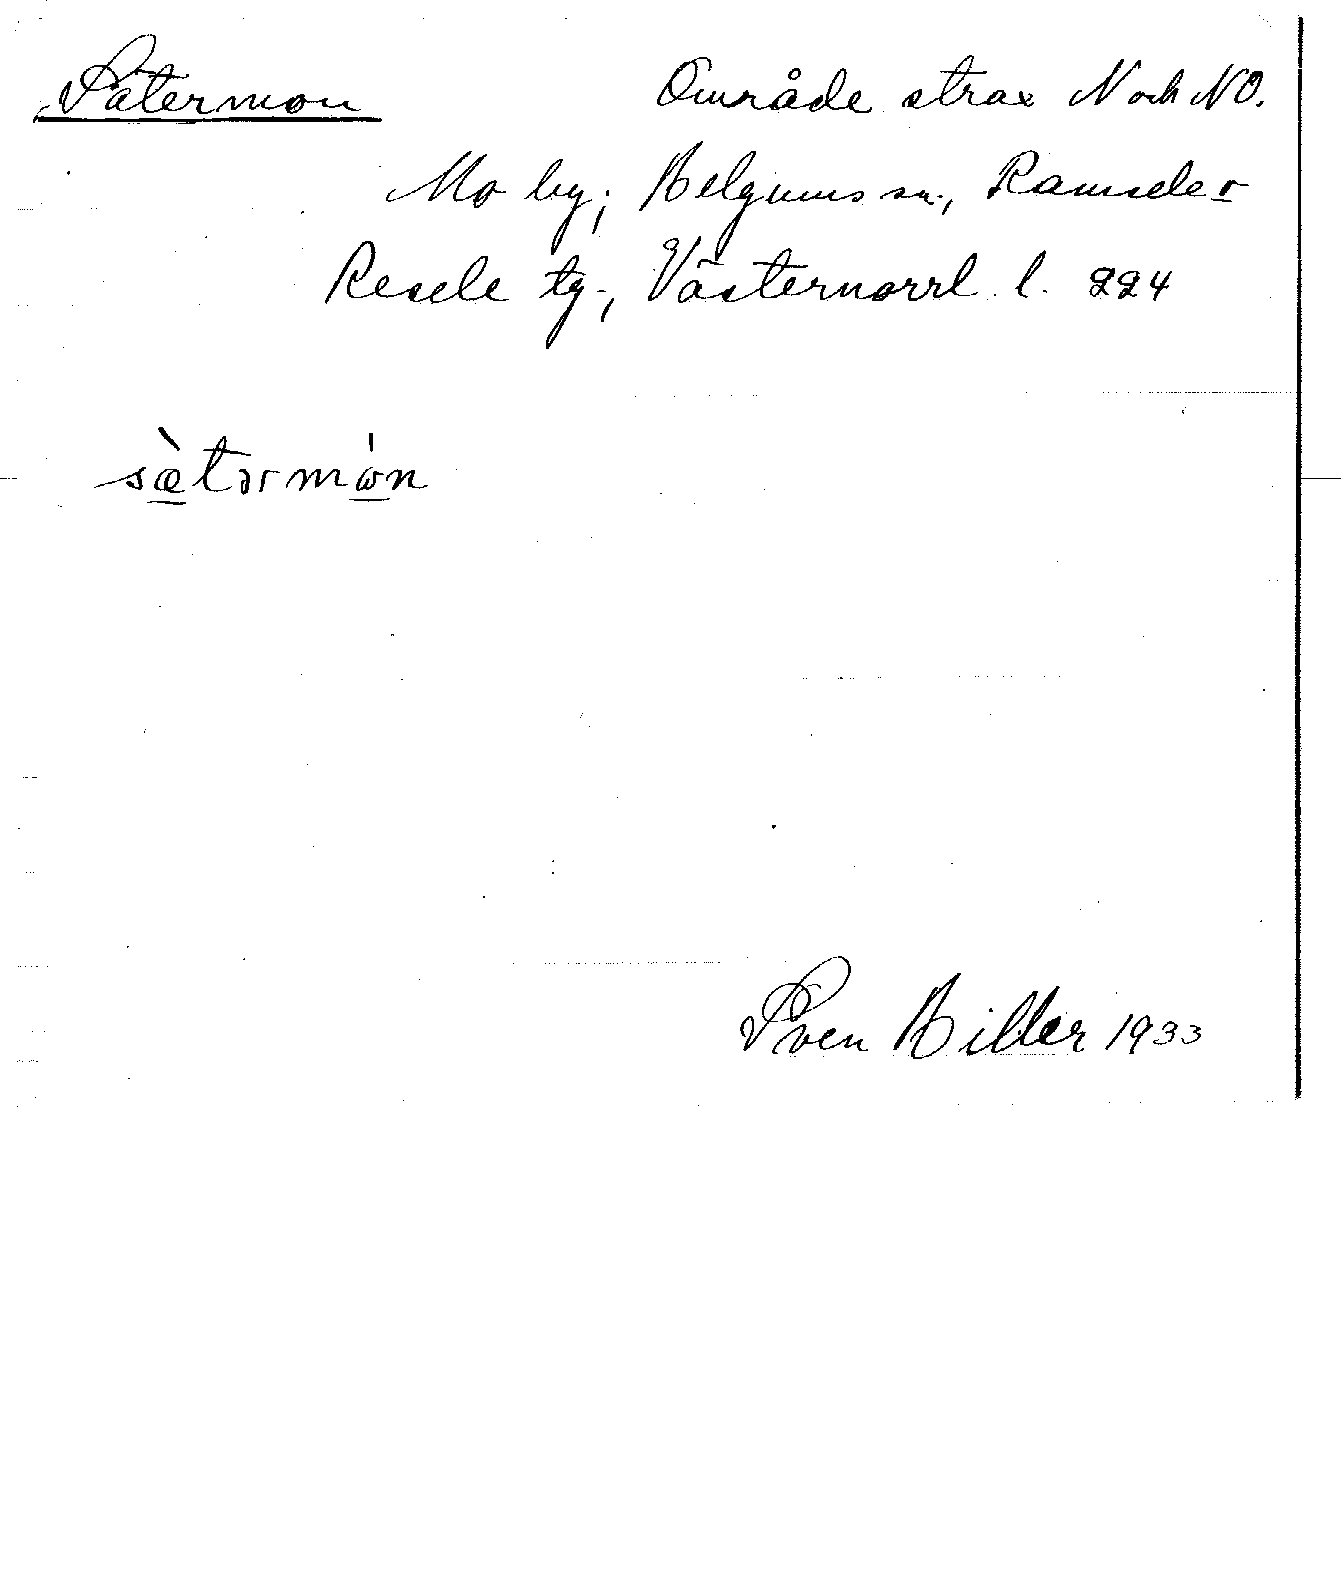 Sätermon Område strax N och NO.
Mo by; Helgums sn., Ramsele o
Resele tg., Västernorrl. l. 224
sætərmòn
Sven Hiller 1933